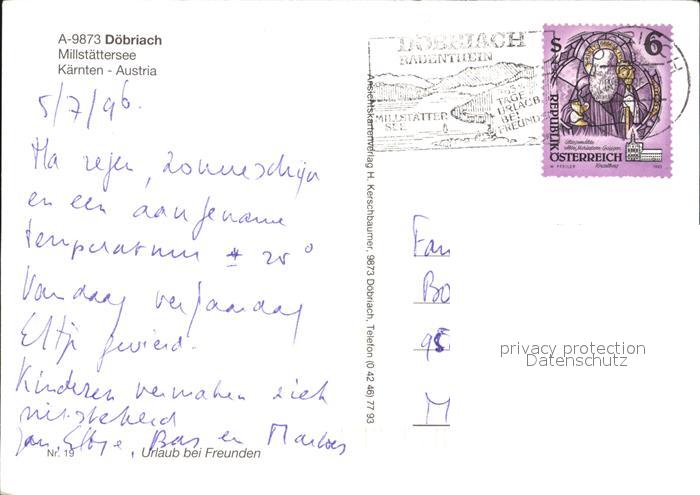 A-9873 Döbriach
Millstättersee
Kärnten - Austria
5/7/96.
Na regen, zonneschijn
en een aangename
temperatuur ± 20°
Vandaag verjaardag
Eltje gevierd.
Kinderen vermaken zich
uitstekend
Jan, Eltje, Bas en
Nr. 19 Urlaub bei Freunden
Ansichtskartenverlag H. Kerschbaumer, 9873 Döbriach, Telefon (0 42 46) 77 93
DÖBRIACH
RADENTHEIN
MILLSTÄTTER
SEE
TAGE
URLAUB
BEI
FREUNDEN
S 6
REPUBLIK
ÖSTERREICH
Fam
Bo
95
M
privacy protection
Datenschutz